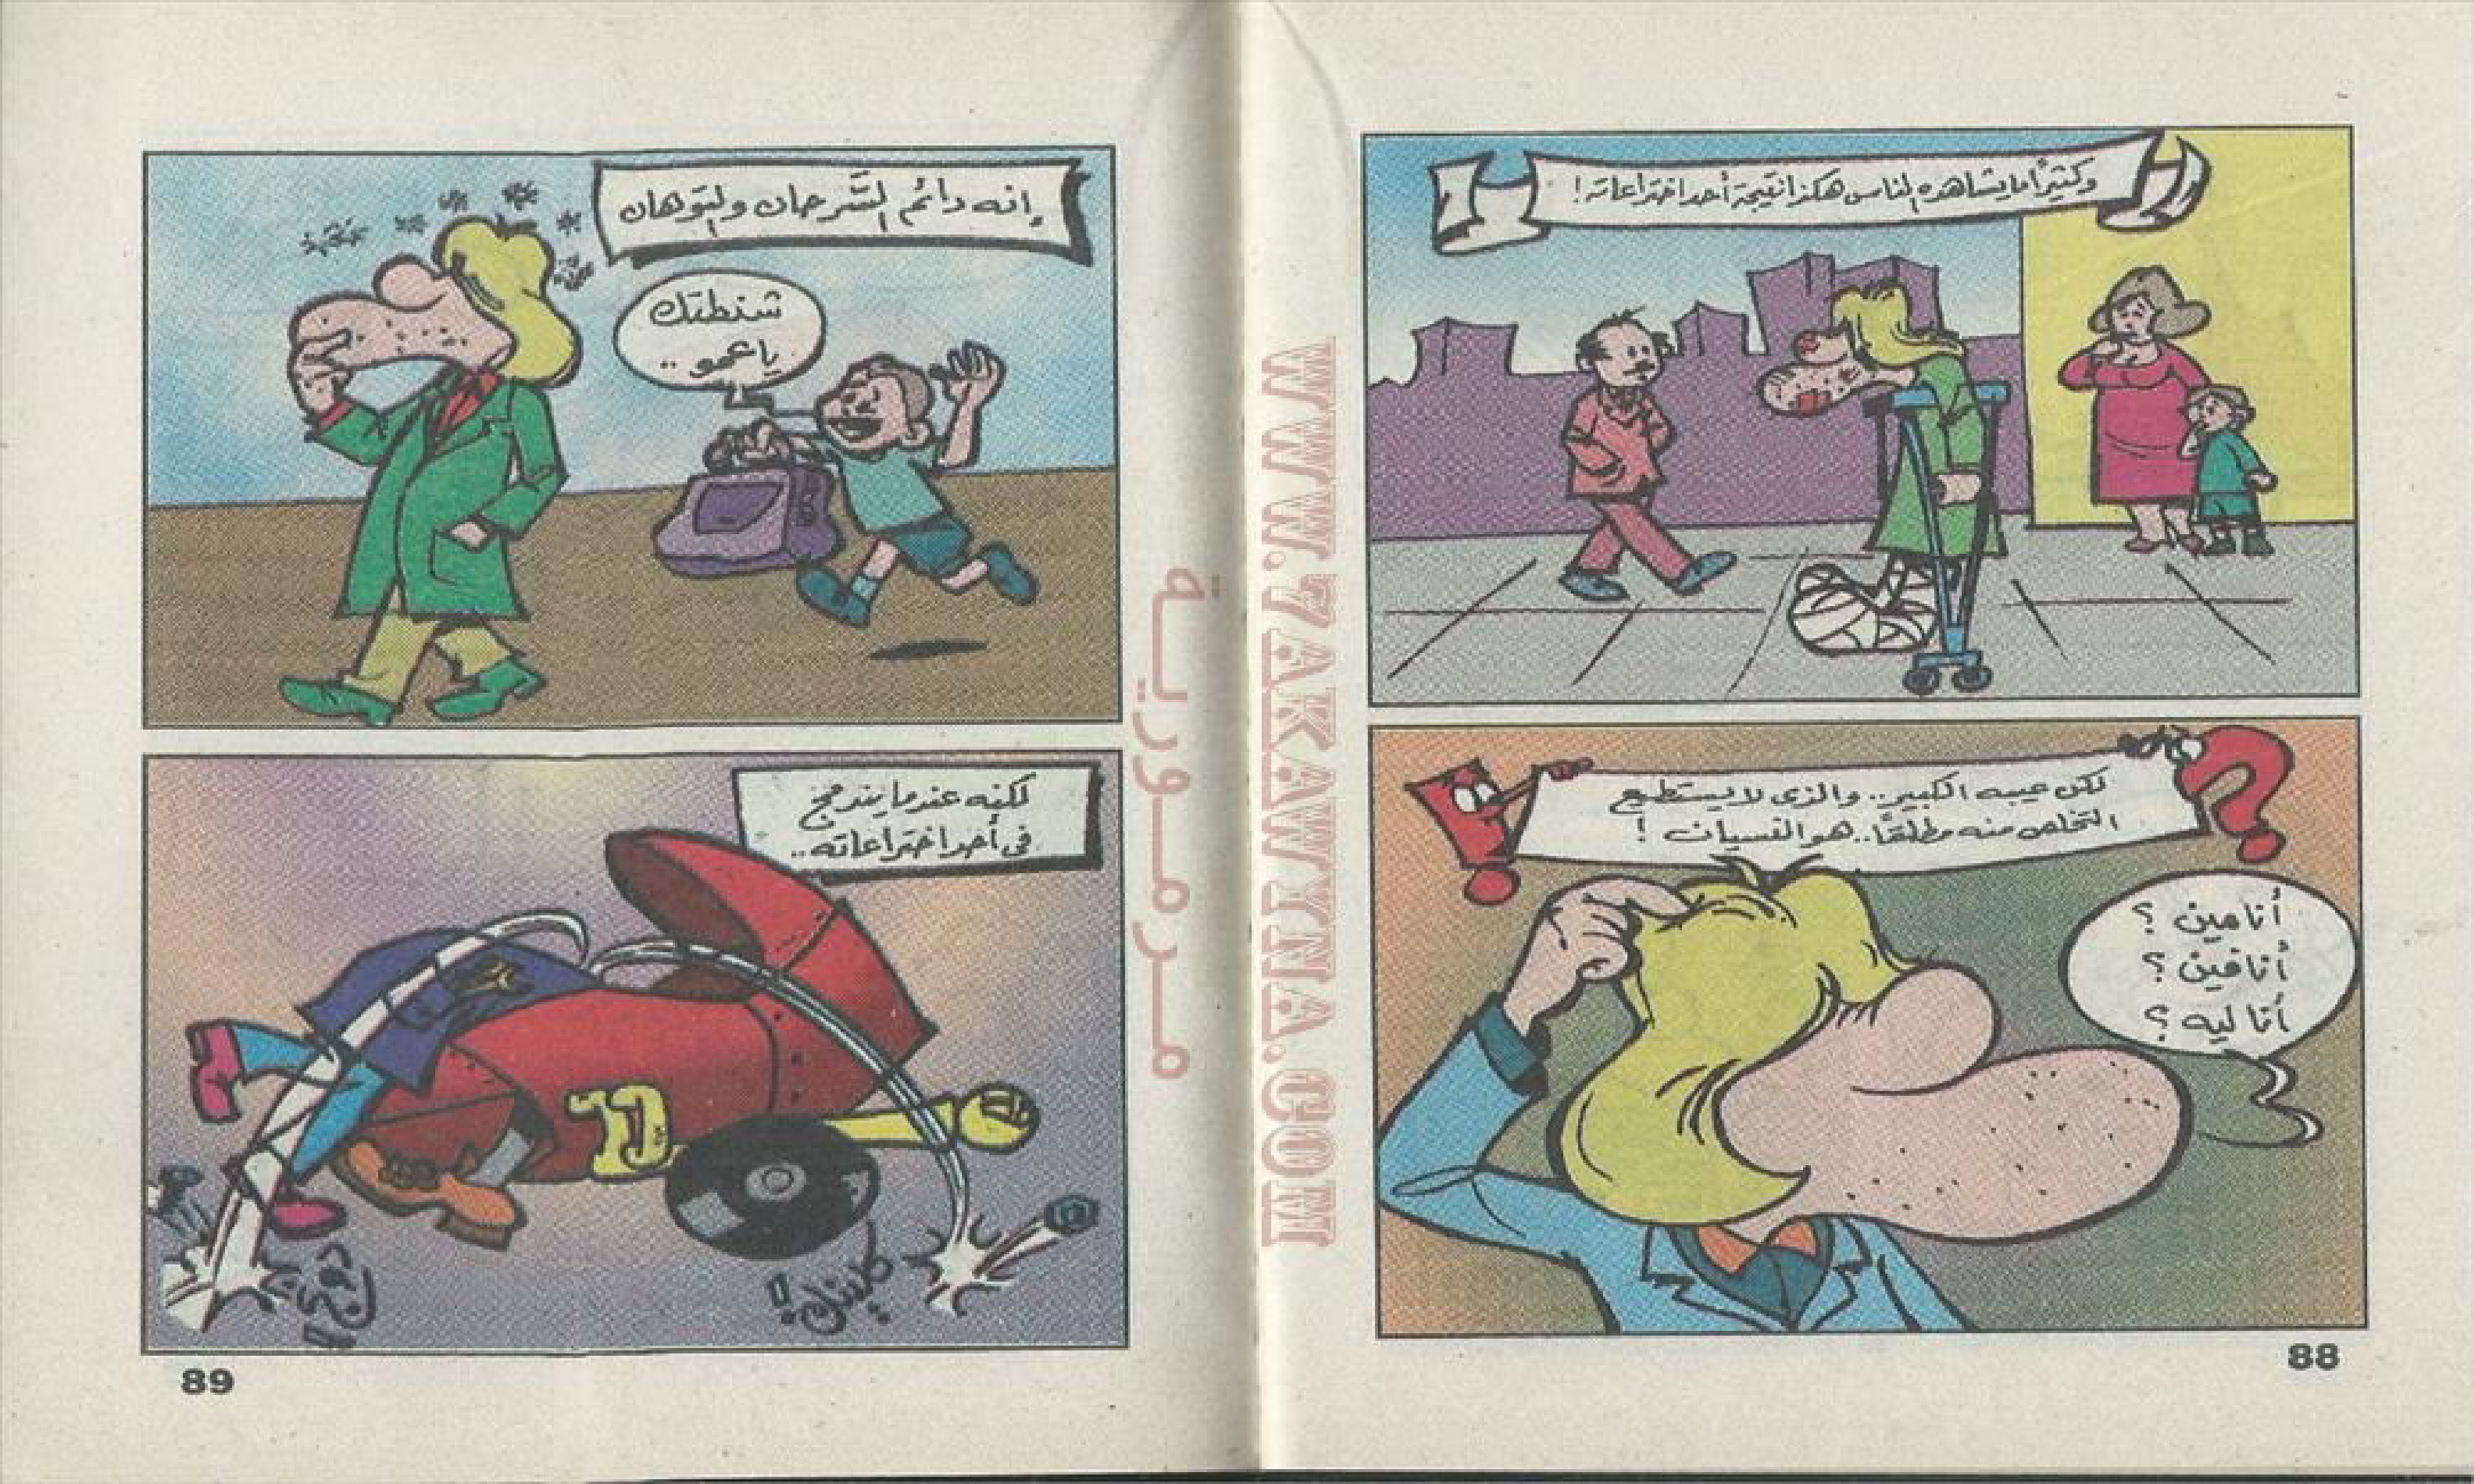 وكثيراً ما يشاهده الناس هكذا نتيجة أحد اختراعاته !
لكن عيبه الكبير.. والذى لا يستطيع
التخلص منه مطلقًا.. هو النسيان !
أنا مين ؟
أنا فين ؟
أنا ليه ؟
88
إنه دائم السَّرحان والتَوهان
شنطتك
يا عمو ..
لكنه عندما يندمج
فى أحد اختراعاته ..
89
WWW.7AKAWYNA.COM